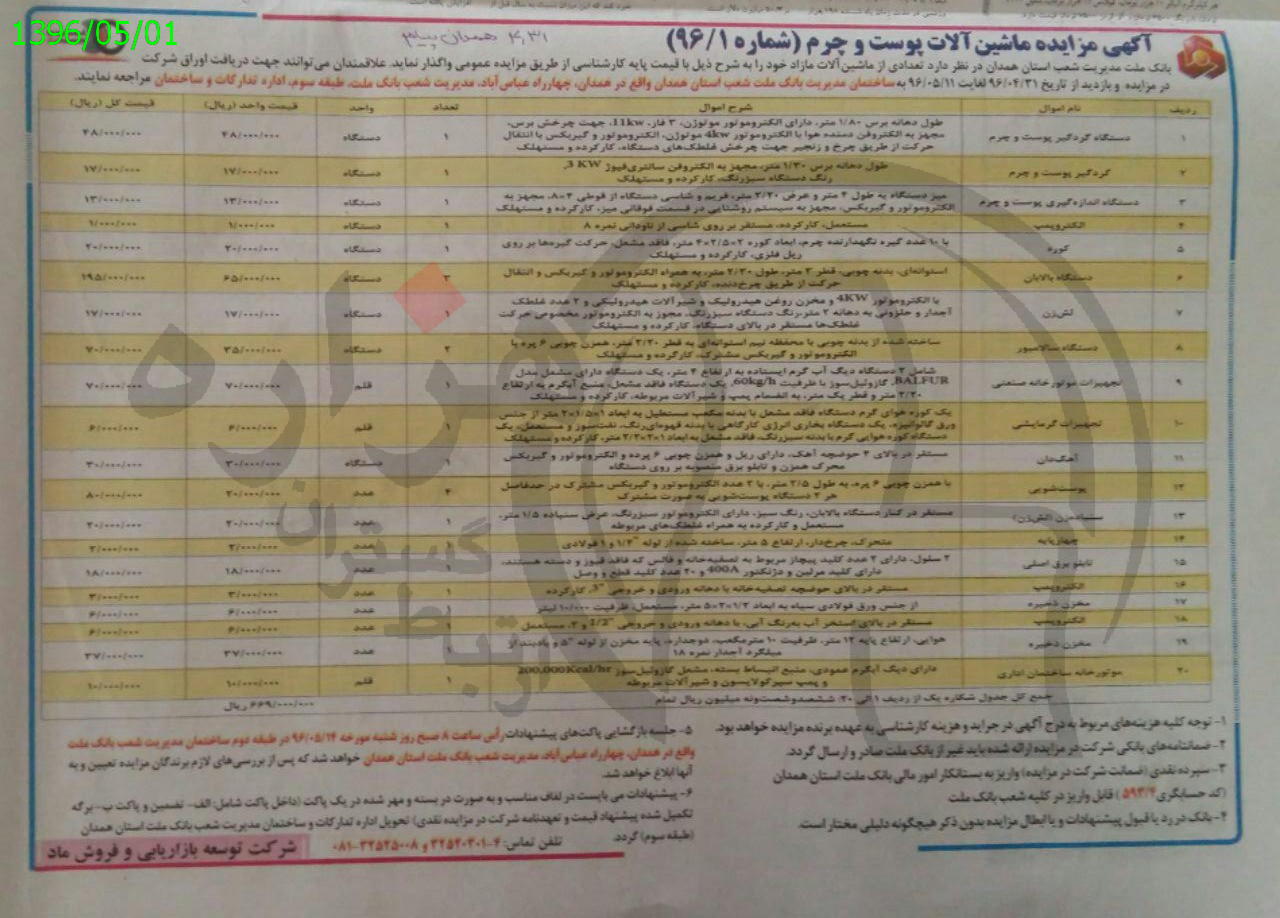 1396/05/01
آگهی مزایده ماشین‌آلات پوست و چرم (شماره ۹۶/۱)
بانک ملت مدیریت شعب استان همدان در نظر دارد تعدادی از ماشین‌آلات مازاد خود را به شرح ذیل با قیمت پایه کارشناسی از طریق مزایده عمومی واگذار نماید. علاقمندان می‌توانند جهت دریافت اوراق شرکت
در مزایده و بازدید از تاریخ ۹۶/۰۴/۳۱ لغایت ۹۶/۰۵/۱۱ به ساختمان مدیریت بانک ملت شعب استان همدان واقع در همدان، چهارراه عباس‌آباد، مدیریت شعب بانک ملت، طبقه سوم، اداره تدارکات و ساختمان مراجعه نمایند.
ردیف نام اموال شرح اموال تعداد واحد قیمت واحد (ریال) قیمت کل (ریال)
۱ دستگاه گردگیر پوست و چرم طول دهانه برس ۱/۸۰ متر، دارای الکتروموتور موتوژن، ۳ فاز، 11kw، جهت چرخش برس،
مجهز به الکتروفن دمنده هوا با الکتروموتور 4kw موتوژن، الکتروموتور و گیربکس با انتقال
حرکت از طریق چرخ و زنجیر جهت چرخش غلطک‌های دستگاه، کارکرده و مستهلک ۱ دستگاه ۴۸/۰۰۰/۰۰۰ ۴۸/۰۰۰/۰۰۰
۲ گردگیر پوست و چرم طول دهانه برس ۱/۳۰ متر، مجهز به الکتروفن سانتریفیوژ 3 KW,
رنگ دستگاه سبزرنگ، کارکرده و مستهلک ۱ دستگاه ۱۷/۰۰۰/۰۰۰ ۱۷/۰۰۰/۰۰۰
۳ دستگاه اندازه‌گیری پوست و چرم میز دستگاه به طول ۴ متر و عرض ۲/۲۰ متر، فریم و شاسی دستگاه از قوطی ۴×۸، مجهز به
الکتروموتور و گیربکس، مجهز به سیستم روشنایی در قسمت فوقانی میز، کارکرده و مستهلک ۱ دستگاه ۱۳/۰۰۰/۰۰۰ ۱۳/۰۰۰/۰۰۰
۴ الکتروپمپ مستعمل، کارکرده، مستقر بر روی شاسی از ناودانی نمره ۸ ۱ دستگاه ۱/۰۰۰/۰۰۰ ۱/۰۰۰/۰۰۰
۵ کوره با ۱۰ عدد گیره نگهدارنده چرم، ابعاد کوره ۲×۲/۵×۴ متر، فاقد مشعل، حرکت گیره‌ها بر روی
ریل فلزی، کارکرده و مستهلک ۱ دستگاه ۲۰/۰۰۰/۰۰۰ ۲۰/۰۰۰/۰۰۰
۶ دستگاه بالابان استوانه‌ای، بدنه چوبی، قطر ۳ متر، طول ۲/۳۰ متر، به همراه الکتروموتور و گیربکس و انتقال
حرکت از طریق چرخ‌دنده، کارکرده و مستهلک ۳ دستگاه ۶۵/۰۰۰/۰۰۰ ۱۹۵/۰۰۰/۰۰۰
۷ لش‌زن با الکتروموتور 4KW و مخزن روغن هیدرولیک و شیرآلات هیدرولیکی و ۲ عدد غلطک
آجدار و حلزونی به دهانه ۲ متر، رنگ دستگاه سبزرنگ، مجوز به الکتروموتور مخصوص حرکت
غلطک‌ها مستقر در بالای دستگاه، کارکرده و مستهلک ۱ دستگاه ۱۷/۰۰۰/۰۰۰ ۱۷/۰۰۰/۰۰۰
۸ دستگاه سالامبور ساخته شده از بدنه چوبی با محفظه نیم استوانه‌ای به قطر ۲/۲۰ متر، همزن چوبی ۶ پره با
الکتروموتور و گیربکس مشترک، کارکرده و مستهلک ۲ دستگاه ۳۵/۰۰۰/۰۰۰ ۷۰/۰۰۰/۰۰۰
۹ تجهیزات موتورخانه صنعتی شامل ۲ دستگاه دیگ آب گرم ایستاده به ارتفاع ۴ متر، یک دستگاه دارای مشعل مدل
BALFUR، گازوئیل‌سوز با ظرفیت 60kg/h، یک دستگاه فاقد مشعل، منبع آبگرم به ارتفاع
۲/۲۰ متر و قطر یک متر، به انضمام پمپ و شیرآلات مربوطه، کارکرده و مستهلک ۱ قلم ۷۰/۰۰۰/۰۰۰ ۷۰/۰۰۰/۰۰۰
۱۰ تجهیزات گرمایشی یک کوره هوای گرم دستگاه فاقد مشعل با بدنه مکعب مستطیل به ابعاد ۱×۱/۵×۲ متر از جنس
ورق گالوانیزه، یک دستگاه بخاری انرژی کارگاهی با بدنه قهوه‌ای‌رنگ، نفت‌سوز و مستعمل، یک
دستگاه کوره هوایی گرم با بدنه سبزرنگ، فاقد مشعل به ابعاد ۱×۲×۲/۲ متر، کارکرده و مستهلک ۱ قلم ۶/۰۰۰/۰۰۰ ۶/۰۰۰/۰۰۰
۱۱ آهک‌دان مستقر در بالای ۲ حوضچه آهک، دارای ریل و همزن چوبی ۶ پرده و الکتروموتور و گیربکس
محرک همزن و تابلو برق منصوبه بر روی دستگاه ۱ دستگاه ۳۰/۰۰۰/۰۰۰ ۳۰/۰۰۰/۰۰۰
۱۲ پوست‌شویی با همزن چوبی ۶ پره، به طول ۲/۵ متر، با ۲ عدد الکتروموتور و گیربکس مشترک در حدفاصل
هر ۲ دستگاه پوست‌شویی به صورت مشترک ۴ عدد ۲۰/۰۰۰/۰۰۰ ۸۰/۰۰۰/۰۰۰
۱۳ سنباده‌زن (لش‌زن) مستقر در کنار دستگاه بالابان، رنگ سبز، دارای الکتروموتور سبزرنگ، عرض سنباده ۱/۵ متر،
مستعمل و کارکرده به همراه غلطک‌های مربوطه ۱ عدد ۲۰/۰۰۰/۰۰۰ ۲۰/۰۰۰/۰۰۰
۱۴ چهارپایه متحرک، چرخ‌دار، ارتفاع ۵ متر، ساخته شده از لوله "۱/۴ و ۱ فولادی ۱ عدد ۲/۰۰۰/۰۰۰ ۲/۰۰۰/۰۰۰
۱۵ تابلو برق اصلی ۲ سلول، دارای ۲ عدد کلید پیچاز مربوط به تصفیه‌خانه و فالس که فاقد فیوز و دسته هستند،
دارای کلید مرلین و دژنکتور 400A و ۲۰ عدد کلید قطع و وصل ۱ عدد ۱۸/۰۰۰/۰۰۰ ۱۸/۰۰۰/۰۰۰
۱۶ الکتروپمپ مستقر در بالای حوضچه تصفیه‌خانه با دهانه ورودی و خروجی "3، کارکرده ۱ عدد ۳/۰۰۰/۰۰۰ ۳/۰۰۰/۰۰۰
۱۷ مخزن ذخیره از جنس ورق فولادی سیاه به ابعاد ۱/۲×۲×۵ متر، مستعمل، ظرفیت ۱۰/۰۰۰ لیتر ۱ عدد ۶/۰۰۰/۰۰۰ ۶/۰۰۰/۰۰۰
۱۸ الکتروپمپ مستقر در بالای استخر آب به‌رنگ آبی، با دهانه ورودی و خروجی "1/2 و ۲، مستعمل ۱ عدد ۶/۰۰۰/۰۰۰ ۶/۰۰۰/۰۰۰
۱۹ مخزن ذخیره هوایی، ارتفاع پایه ۱۲ متر، ظرفیت ۱۰ مترمکعب، دوجداره، پایه مخزن از لوله "۵ و بادبند از
میلگرد آجدار نمره ۱۸ ۱ عدد ۳۷/۰۰۰/۰۰۰ ۳۷/۰۰۰/۰۰۰
۲۰ موتورخانه ساختمان اداری دارای دیگ آبگرم عمودی، منبع انبساط بسته، مشعل گازوئیل‌سوز 200,000Kcal/hr
و پمپ سیرکولاسیون و شیرآلات مربوطه ۱ قلم ۱۰/۰۰۰/۰۰۰ ۱۰/۰۰۰/۰۰۰
جمع کل جدول شماره یک از ردیف ۱ الی ۲۰: ششصدوشصت‌ونه میلیون ریال تمام ۶۶۹/۰۰۰/۰۰۰ ریال
۱- توجه کلیه هزینه‌های مربوط به درج آگهی در جراید و هزینه کارشناسی به عهده برنده مزایده خواهد بود.
۲- ضمانتنامه‌های بانکی شرکت در مزایده ارائه شده باید غیر از بانک ملت صادر و ارسال گردد.
۳- سپرده نقدی (ضمانت شرکت در مزایده) واریز به بستانکار امور مالی بانک ملت استان همدان
(کد حسابگری ۵۹۳/۴) قابل واریز در کلیه شعب بانک ملت.
۴- بانک در رد یا قبول پیشنهادات و یا ابطال مزایده بدون ذکر هیچگونه دلیلی مختار است.
۵- جلسه بازگشایی پاکت‌های پیشنهادات رأس ساعت ۸ صبح روز شنبه مورخه ۹۶/۰۵/۱۴ در طبقه دوم ساختمان مدیریت شعب بانک ملت
واقع در همدان، چهارراه عباس‌آباد، مدیریت شعب بانک ملت استان همدان خواهد شد که پس از بررسی‌های لازم برندگان مزایده تعیین و به
آنها ابلاغ خواهد شد.
۶- پیشنهادات می بایست در لفاف مناسب و به صورت در بسته و مهر شده در یک پاکت (داخل پاکت شامل: الف- تضمین و پاکت ب- برگه
تکمیل شده پیشنهاد قیمت و تعهدنامه شرکت در مزایده نقدی) تحویل اداره تدارکات و ساختمان مدیریت شعب بانک ملت استان همدان
(طبقه سوم) گردد.
تلفن تماس: ۴-۳۲۵۲۰۳۰۱ و ۳۲۵۲۵۰۰۸-۰۸۱
شرکت توسعه بازاریابی و فروش ماد
مزاره
گستران
ارتباط